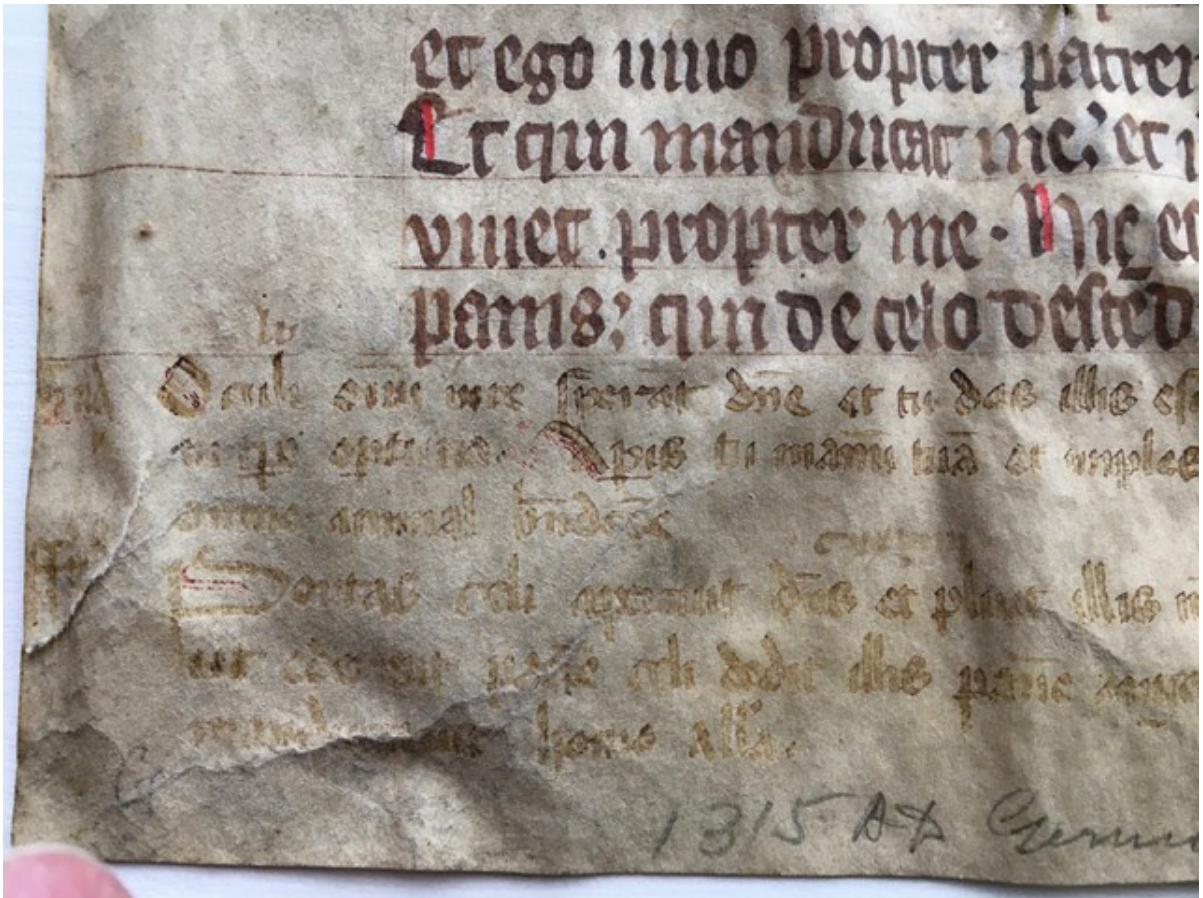 et ego uiuo propter patrem
Et qui manducat me: et i
viuet propter me. Hic e
panis: qui de celo desced
Oculi oim in te sperāt dn̄e et tu das illis es
oportuno Apis tu manū tuā et imples
omne animal bn̄dcōe
Portas celi aperuit dn̄s et pluit illis
ut ederent panē celi dedit illis panē
homo alla.
1315 AD Germ